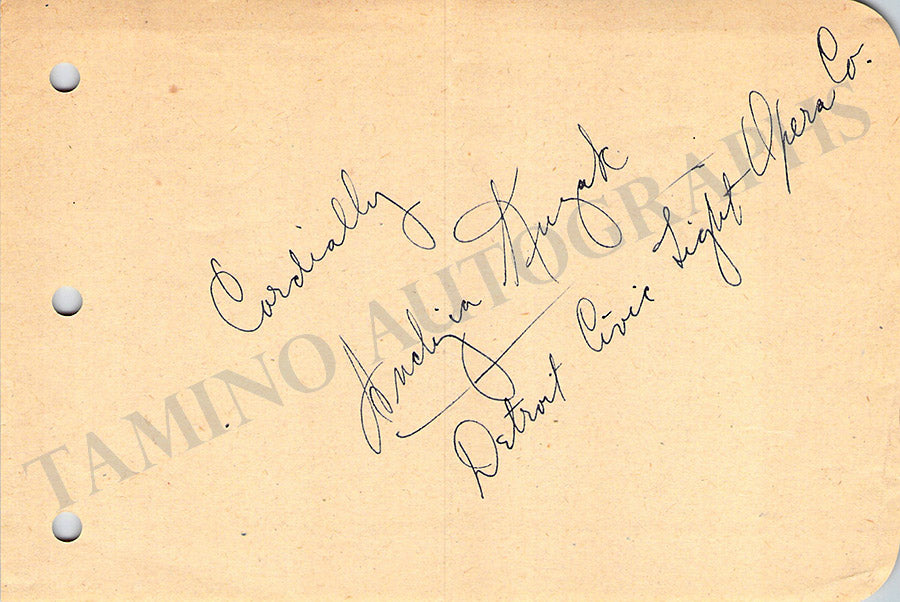 Cordially
Andzia Kuzak
Detroit Civic Light Opera Co.
TAMINO AUTOGRAPHS